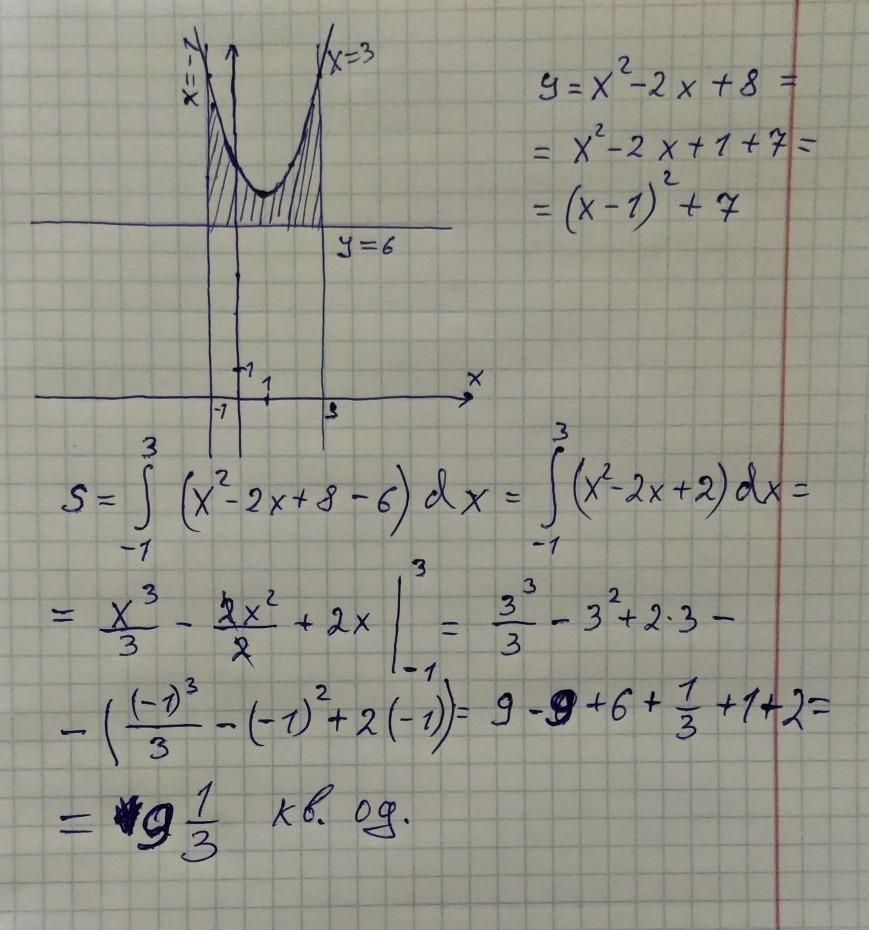 x=-1
x=3
y=6
1
1
x
-1
3
y = x²-2x+8 =
= x²-2x+1+7 =
= (x-1)² + 7
S = ∫₋₁³ (x²-2x+8-6) dx = ∫₋₁³ (x²-2x+2) dx =
= x³/3 - 2x²/2 + 2x |₋₁³ = 3³/3 - 3² + 2·3 -
- ((-1)³/3 - (-1)² + 2(-1)) = 9 - 9 + 6 + 1/3 + 1 + 2 =
= 9 1/3 кв. од.